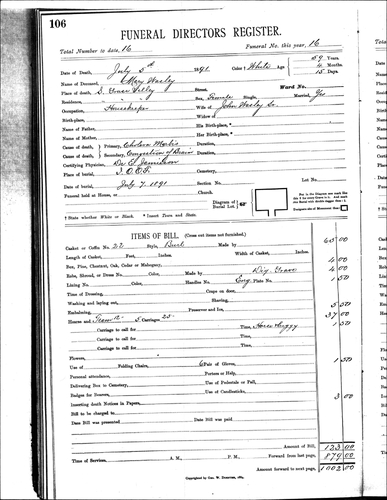 106
FUNERAL DIRECTORS REGISTER.
Total Number to date, 16 Funeral No. this year, 16
Date of Death, July 5th 1891. Color † White Age 59 Years.
4 Months
15 Days.
Name of Deceased, Mary
Place of Death, S. Street. Ward No.
Residence, Sex, Female Single, Married, Yes
Occupation, Housekeeper Wife of John Sr.
Birth-place, Widow of
Name of Father, His Birth-place,
Name of Mother, Her Birth-place,
Cause of death, Primary, Cholera Morbus Duration,
Cause of death, Secondary, Congestion of Brain Duration,
Certifying Physician, Dr. E. Jamison
Place of burial, I.O.O.F. Cemetery,
Date of burial, July 7, 1891 Section No. Lot No.
Funeral held at Home, or Diagram of Burial Lot.
† State whether White or Black. * Insert Town and State.
ITEMS OF BILL. (Cross out items not furnished.)
Casket or Coffin No. 22 Style, Burl Made by 65 00
Length of Casket, Feet, Inches. Width of Casket, Inches.
Box, Pine, Chestnut, Oak, Cedar or Mahogany, 4 00
Robe, Shroud, or Dress No. Color, Made by Dig Grave 4 00
Lining No. Color, Handles No. Eng. Plate No. 1 50
Time of Dressing, Crape on door,
Washing and laying out, Shaving,
Embalming, Preserver and Ice, 5 50
Hearse and Team 12- 5 Carriages 25- 37 00
Carriage to call for Time, Horse Buggy 1 50
Carriage to call for Time,
Carriage to call for Time,
Flowers,
Use of Folding Chairs, 6 Pair of Gloves, 1 50
Personal attendance, Porters or Help,
Delivering Box to Cemetery, Use of Pedestals or Pall,
Badges for Bearers, Use of Candlesticks,
Inserting death Notices in Papers, 3 00
Bill to be charged to
Date Bill was presented Date Bill was paid
Amount of Bill, 123 00
Forward from last page, 879 00
Time of Services, A. M., P. M. Amount forward to next page, 1002 00